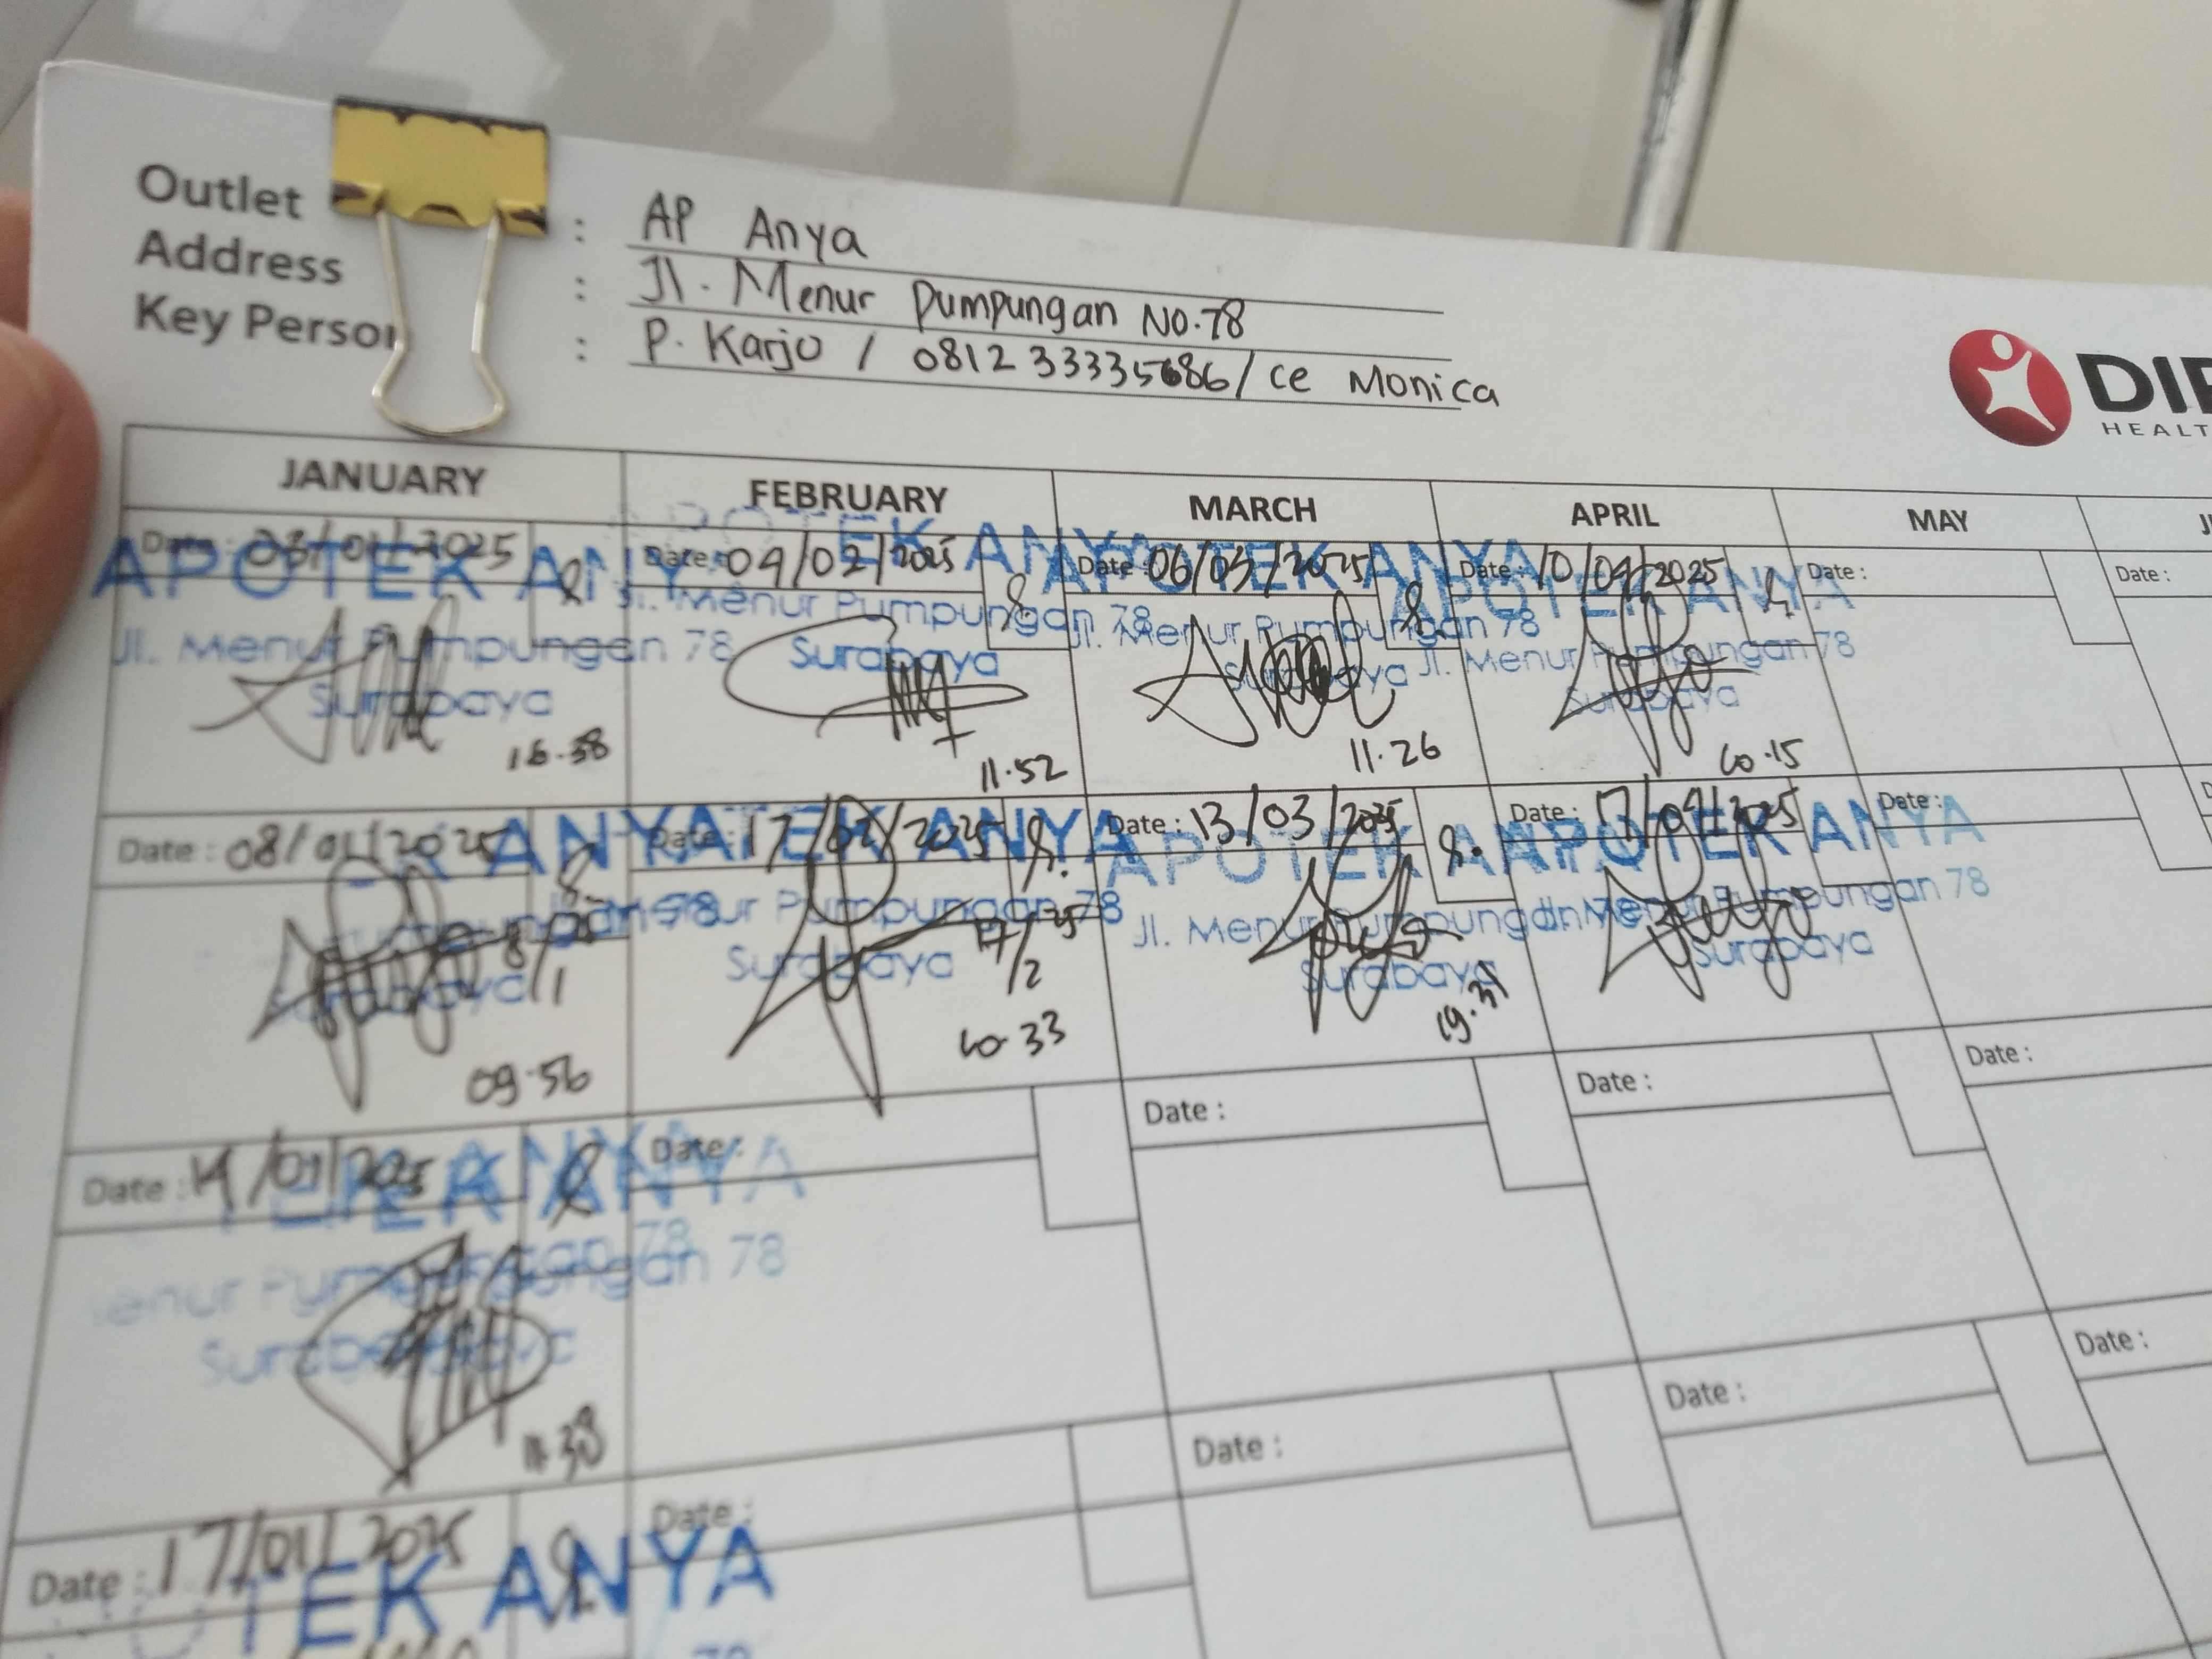 Outlet : AP Anya
Address : Jl. Menur Pumpungan No.78
Key Person : P. Karjo / 0812 33335686/ ce Monica
HEALT
JANUARY FEBRUARY MARCH APRIL MAY
Date : 03/01/2025 Date : 04/02/2025 Date : 06/03/2025 Date : 10/04/2025 Date : Date :
APOTEK ANYA APOTEK ANYA APOTEK ANYA APOTEK ANYA
Jl. Menur Pumpungan 78 Jl. Menur Pumpungan 78 Jl. Menur Pumpungan 78 Jl. Menur Pumpungan 78
Surabaya Surabaya Surabaya Surabaya
16.38 11.52 11.26 10.15
Date : 08/01/2025 Date : 17/02/2025 Date : 13/03/2025 Date : 17/04/2025 Date :
ANYA TEK ANYA APOTEK A APOTEK ANYA
78 ur Pumpungan 78 Jl. Menur Pumpungan 78 Menur Pumpungan 78
Surabaya Surabaya Surabaya
8/1 17/2 25 19.31
09.56 10.33
Date : 14/01/2025 Date : Date : Date : Date :
TEK ANYA
enur Pumpungan 78
Surabaya
11.38
Date : 17/01/2025 Date : Date : Date : Date :
OTEK ANYA
78